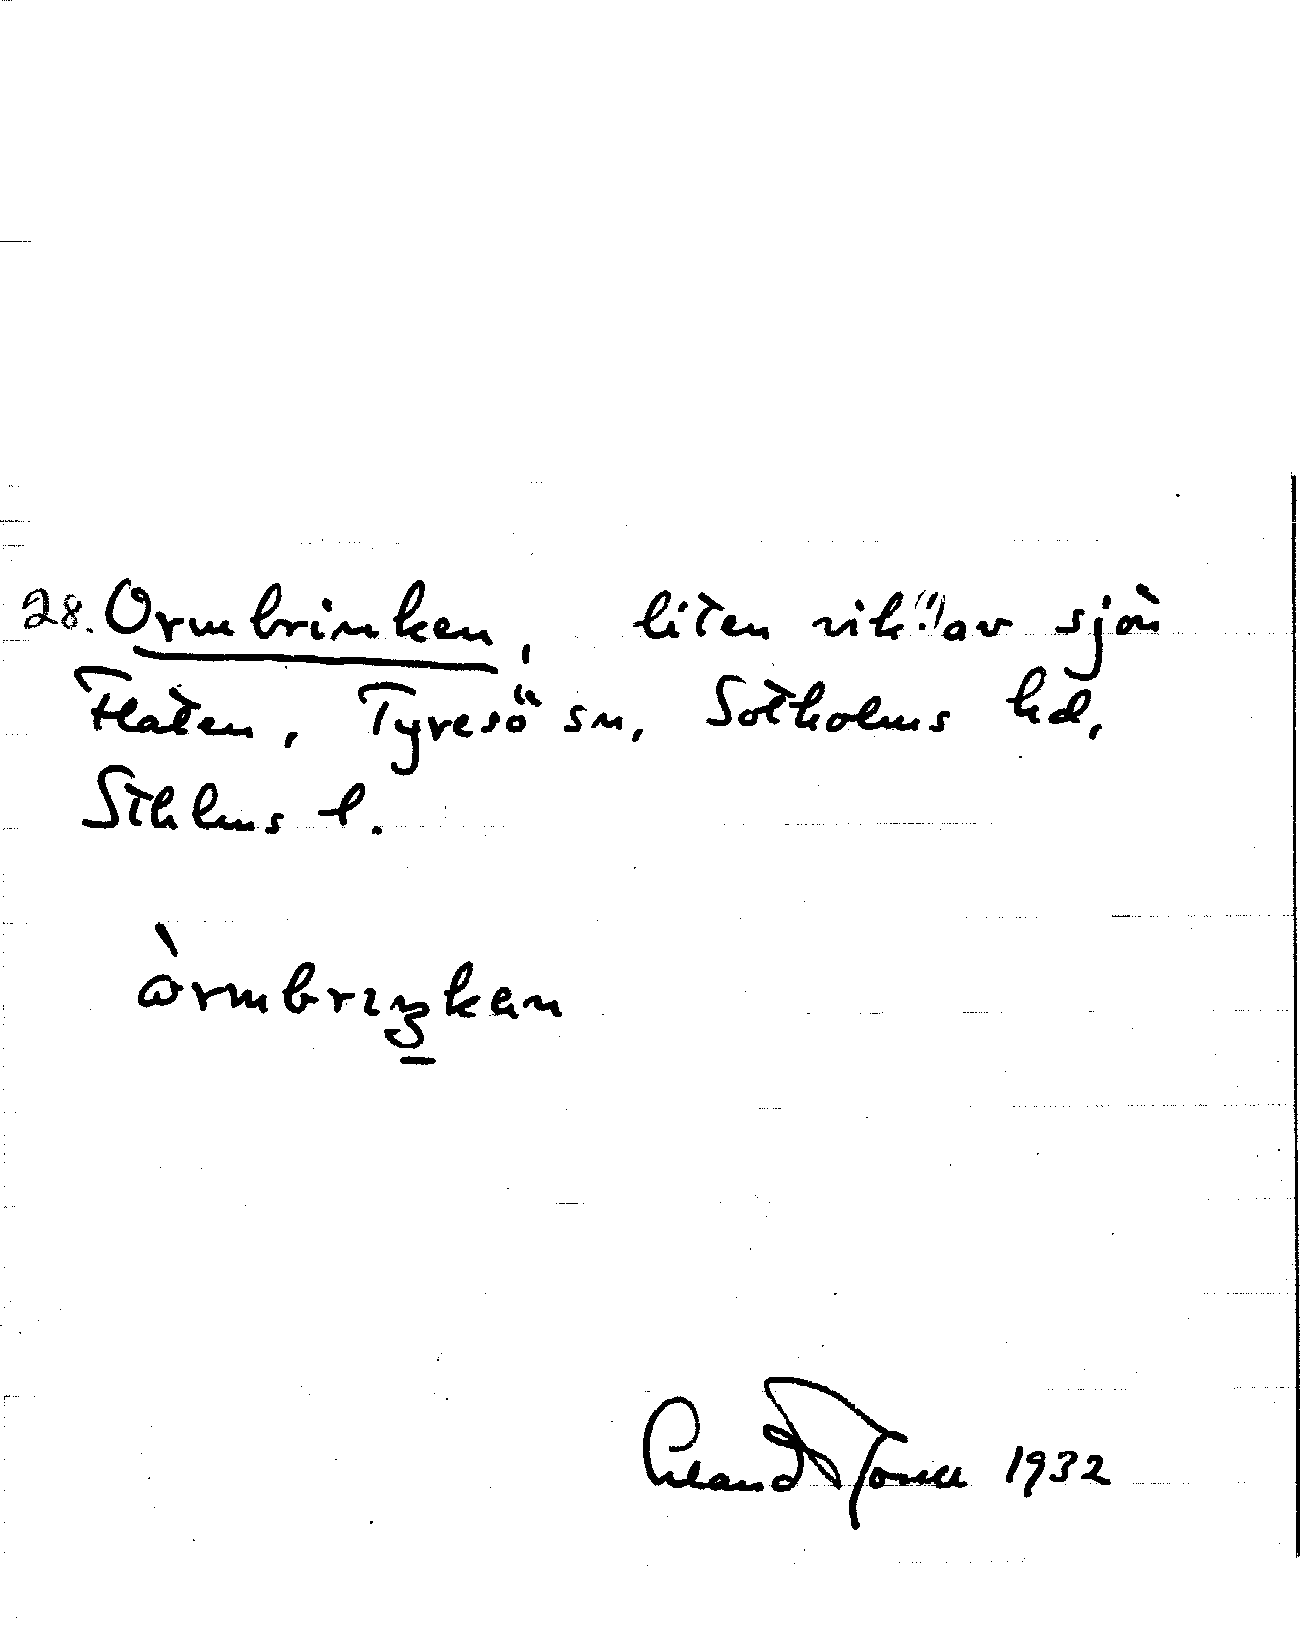 28. Ormbrinken, liten vik"!) av sjön
Flaten, Tyresö sn, Sotholms hd,
Sthlms l.
òrmbrıŋkən
Erland 1932